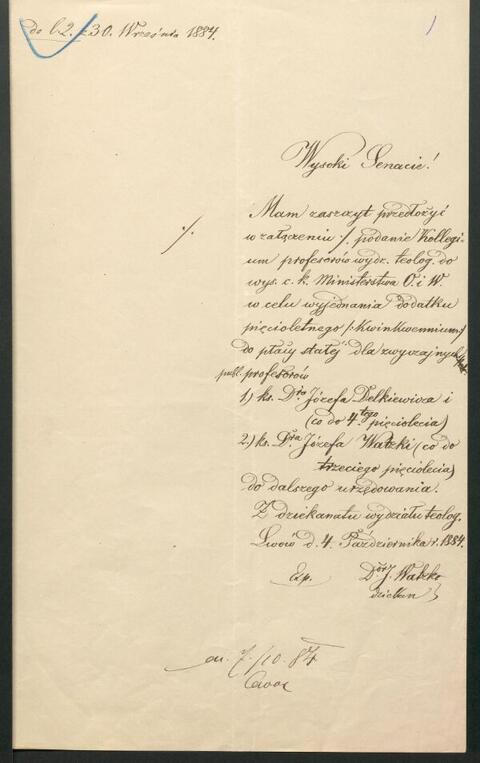 do l. 2. z 30. Września 1884.
Wysoki Senacie!
Mam zaszczyt przedłożyć
w załączeniu ·/. podanie Kollegi-
um profesorów wydz. teolog. do
wys. c. k. Ministerstwa O. i W.
w celu wyjednania dodatku
pięcioletnego /:Kwinkwennium:/
do płacy stałej dla zwyczajnych
publ. profesorów
1) ks. Dra Józefa Delkiewicza i
(co do 4tego pięciolecia)
2.) ks. Dra Józefa Watzki (co do
trzeciego pięciolecia)
do dalszego urzędowania.
Z dziekanatu wydziału teolog.
Lwów d. 4. Października r. 1884.
Exp.
Dor J. Watzko
dziekan
·/.
7/10 84